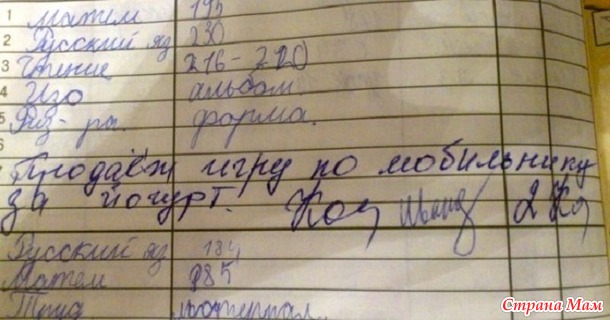 1 Матем 195
2 Русский яз 230
3 Чтение 216-220
4 Изо альбом
5 Физ-ра. форма.
Продаёж игру по мобильнику
за йогурт. Кол 2
Русский яз 184
Матем 985
Труд материал
Страна Мам